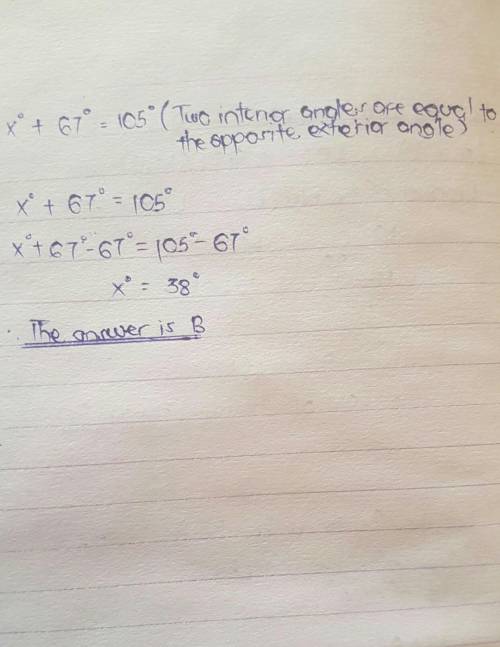 x° + 67° = 105° (Two interior angles are equal to
the opposite exterior angle)
x° + 67° = 105°
x° + 67° - 67° = 105° - 67°
x° = 38°
The answer is B